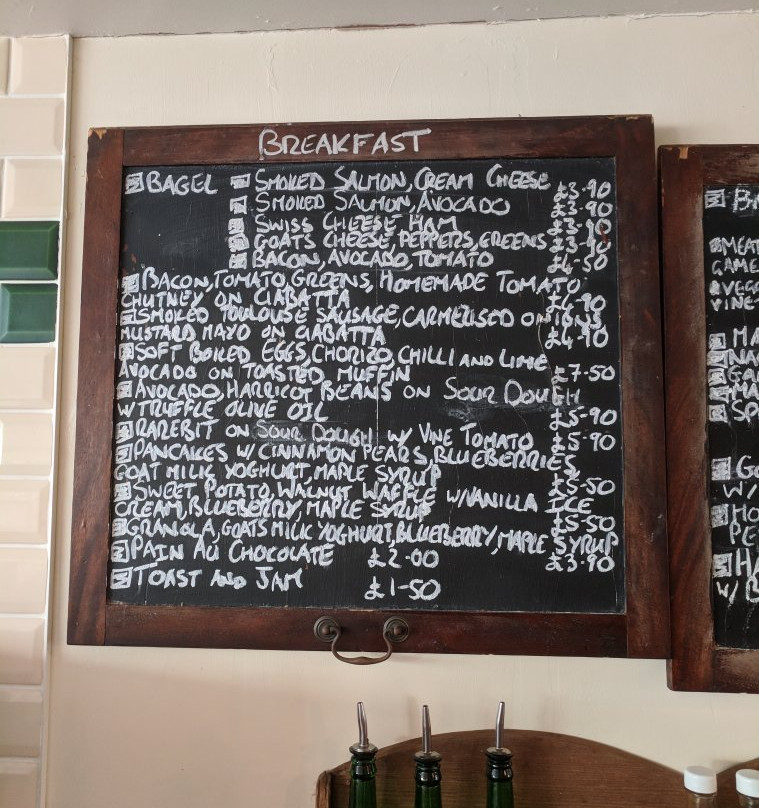 BREAKFAST
BAGEL SMOKED SALMON, CREAM CHEESE £3.90
SMOKED SALMON, AVOCADO £3.90
SWISS CHEESE HAM
GOATS CHEESE, PEPPERS, GREENS
BACON, AVOCADO, TOMATO £4.50
BACON, TOMATO, GREENS, HOMEMADE TOMATO
CHUTNEY ON CIABATTA £4.90
SMOKED TOULOUSE SAUSAGE, CARMELISED ONIONS
MUSTARD MAYO ON CIABATTA £4.90
SOFT BOILED EGGS, CHORIZO, CHILLI AND LIME
AVOCADO ON TOASTED MUFFIN £7.50
AVOCADO, HARRICOT BEANS ON SOUR DOUGH
W TRUFFLE OLIVE OIL £5.90
RAREBIT ON SOUR DOUGH W/ VINE TOMATO £5.90
PANCAKES W/ CINNAMON PEARS, BLUEBERRIES
GOAT MILK YOGHURT, MAPLE SYRUP £5.50
SWEET POTATO, WALNUT WAFFLE W/ VANILLA ICE
CREAM, BLUEBERRY, MAPLE SYRUP £5.50
GRANOLA, GOATS MILK YOGHURT, BLUEBERRY, MAPLE SYRUP
£3.90
PAIN AU CHOCOLATE £2.00
TOAST AND JAM £1.50